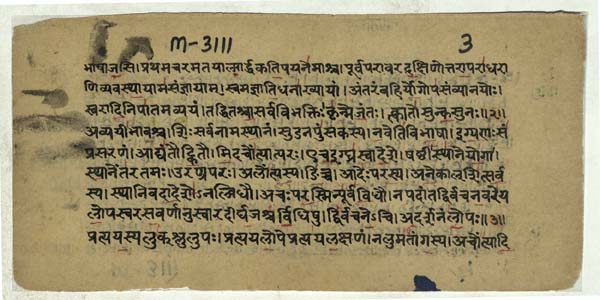 M-3111
3
भाषाजसि। प्रथमचरमतयाल्पार्द्धकतिपयनेमाश्च। पूर्वपरावरदक्षिणोत्तरापराधरा
णिव्यवस्थायामसंज्ञायाम्। स्वमज्ञातिधनाख्यायां। अंतरंबहिर्योगोपसंव्यानयोः।
स्वरादिनिपातमव्ययं। तद्धितश्चासर्वविभक्तिः। कृन्मेजंतः। क्त्वातोसुन्कसुनः॥२॥
अव्ययीभावश्च। शिःसर्वनामस्थानं। सुडनपुंसकस्य। नवेतिविभाषा। इग्यणःसं
प्रसरणं। आद्यंतौटकितौ। मिदचोंत्यात्परः। एचइग्घ्रस्वादेशे। षष्ठीस्थानेयोगा।
स्थानेंतरतमः। उरण्रपरः। अलोंत्यस्य। ङिच्च। आदेःपरस्य। अनेकाल्शित्सर्व
स्य। स्थानिवदादेशोऽनल्विधौ। अचःपरस्मिन्पूर्वविधौ। नपदांतद्विर्वचनवरेय
लोपस्वरसवर्णानुस्वारदीर्घजश्चर्विधिषु। द्विर्वचनेऽचि। अदर्शनंलोपः॥३॥
प्रत्ययस्यलुक्श्लुलुपः। प्रत्ययलोपेप्रत्ययलक्षणं। नलुमतांगस्य। अचोंत्यादि